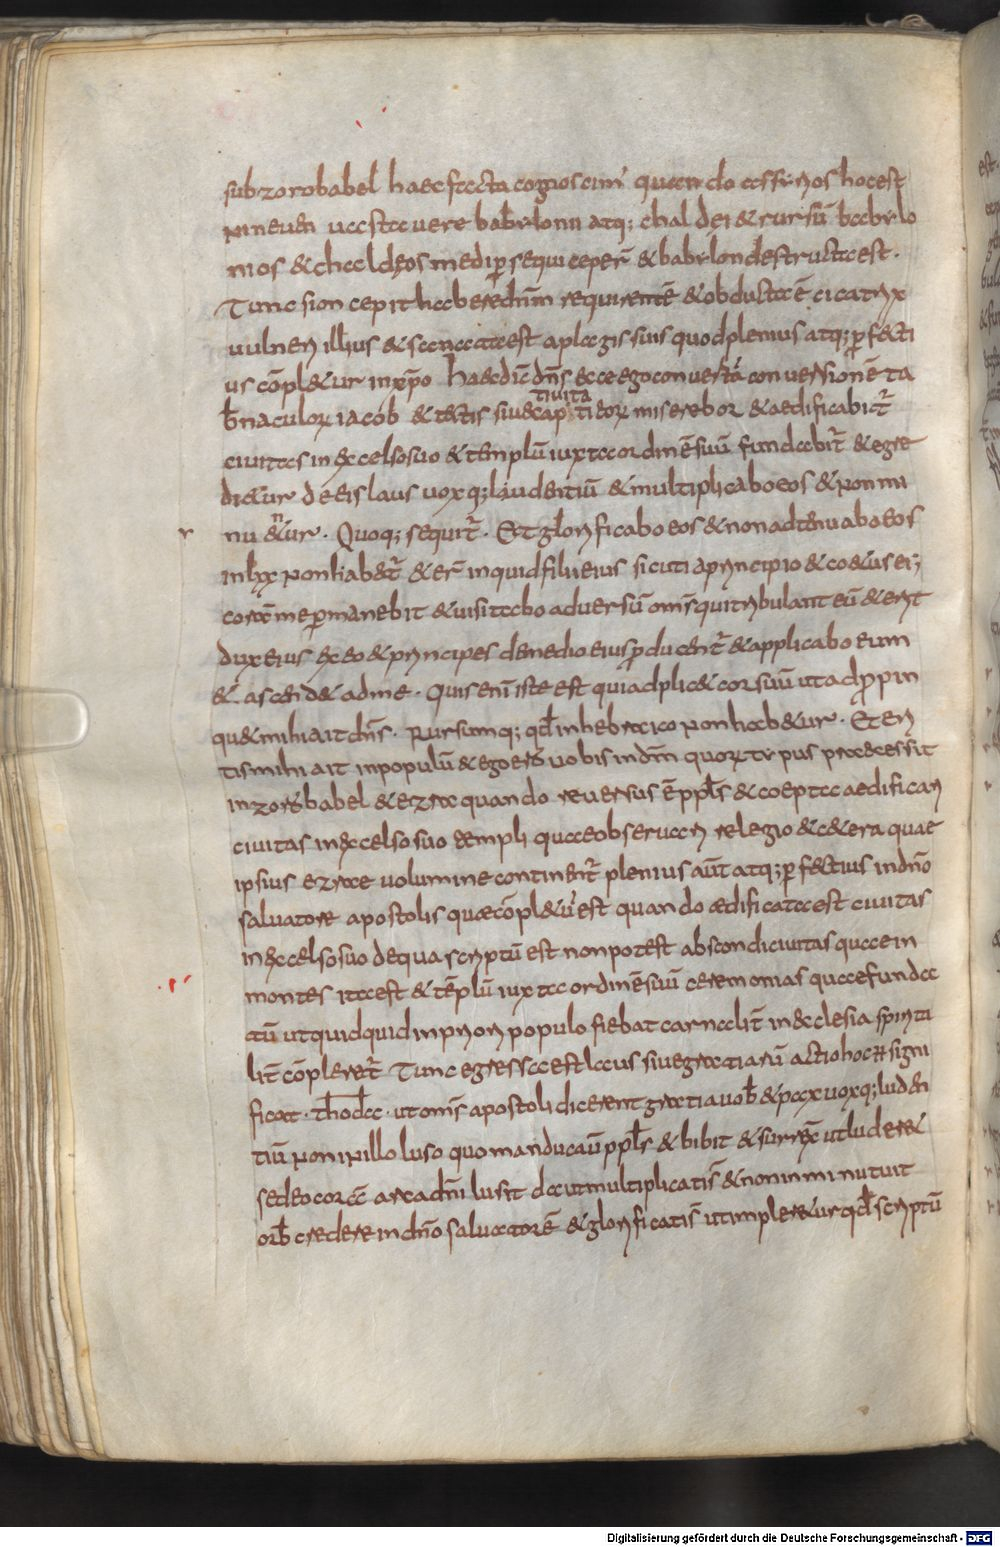 sub zorobabel haec facta cognoscimus quando assyrios hoc est
nineuen uastauere babylonii atq; chaldei & rursū baby lo
nios & chaldęos medi p̱sequi ceper̄ & babylon destructa est.
Tunc sion cepit habere dn̄m requirentē & obducta ē cicatrix
uulneri illius & sanata est a plagis suis quod plenius atq; ꝑfecti
us cōpl&ur in xp̄o haec dic̄ dn̄s ecce ego conuertā conuersionē ta
b̄naculoꝝ iacob & tectis siue captiuitati eoꝝ miserebor & aedificabit̄
ciuitas in excelso suo & templū iuxta ordinē suū fundabit̄ & egre
di&ur de eis laus uoxq; laudentiū & multiplicabo eos & non mi
nu&nur. Quoq; sequit̄. Et glorificabo eos & non adtenuabo eos
in lxx non hab&̄ & er̄ inquid filii eius sicuti a principio & co&us ei;
coram me ꝑmanebit & uisitabo aduersū om̄s qui tribulant eū & erit
dux eius ex eo & principes de medio eius ꝓducent̄ & applicabo eum
& ascend& ad me. Quis enī iste est qui adplic& cor suū ut adꝓpin
qu& mihi ait dn̄s. Rursumq; qđ in hebraico non hab&ur. Et eri
tis mihi ait in populū & ego ero uobis in dm̄ quoꝝ typus praecessit
in zorobabel & ezra quando reuersus ē ppl̄s & coepta aedificari
ciuitas in excelso suo templi quae obseruari relegio & c&era quae
ipsius ezrae uolumine continent̄ plenius aut̄ atq; ꝑfectius in dn̄o
saluatore apostolis quae cōpl&ū est quando ædificata est ciuitas
in excelso suo de qua scriptū est non potest abscondi ciuitas quae in
montes ita est & tēplū iuxta ordinē suū ceremonias quae funda
tū ut quidquid in priori populo fiebat carnalit̄ in ecclesia spirita
lit̄ cōpleret̄ Tunc egressa est laus siue gratiarū actio hoc n̄ signi
ficat. thoda. ut om̄s apostoli dicerent gratia uob̄ & pax uoxq; luden
tiū non illo luso quo manducauit ppl̄s & bibit & surrex̄ ut luder&
sed eo corā arca dn̄i lusit dauit multiplicatis̄ & non inminutuit
orb̄ credere in dn̄o saluatorē & glorificatis̄ ut impler&ur qđ scriptū
Digitalisierung gefördert durch die Deutsche Forschungsgemeinschaft - DFG